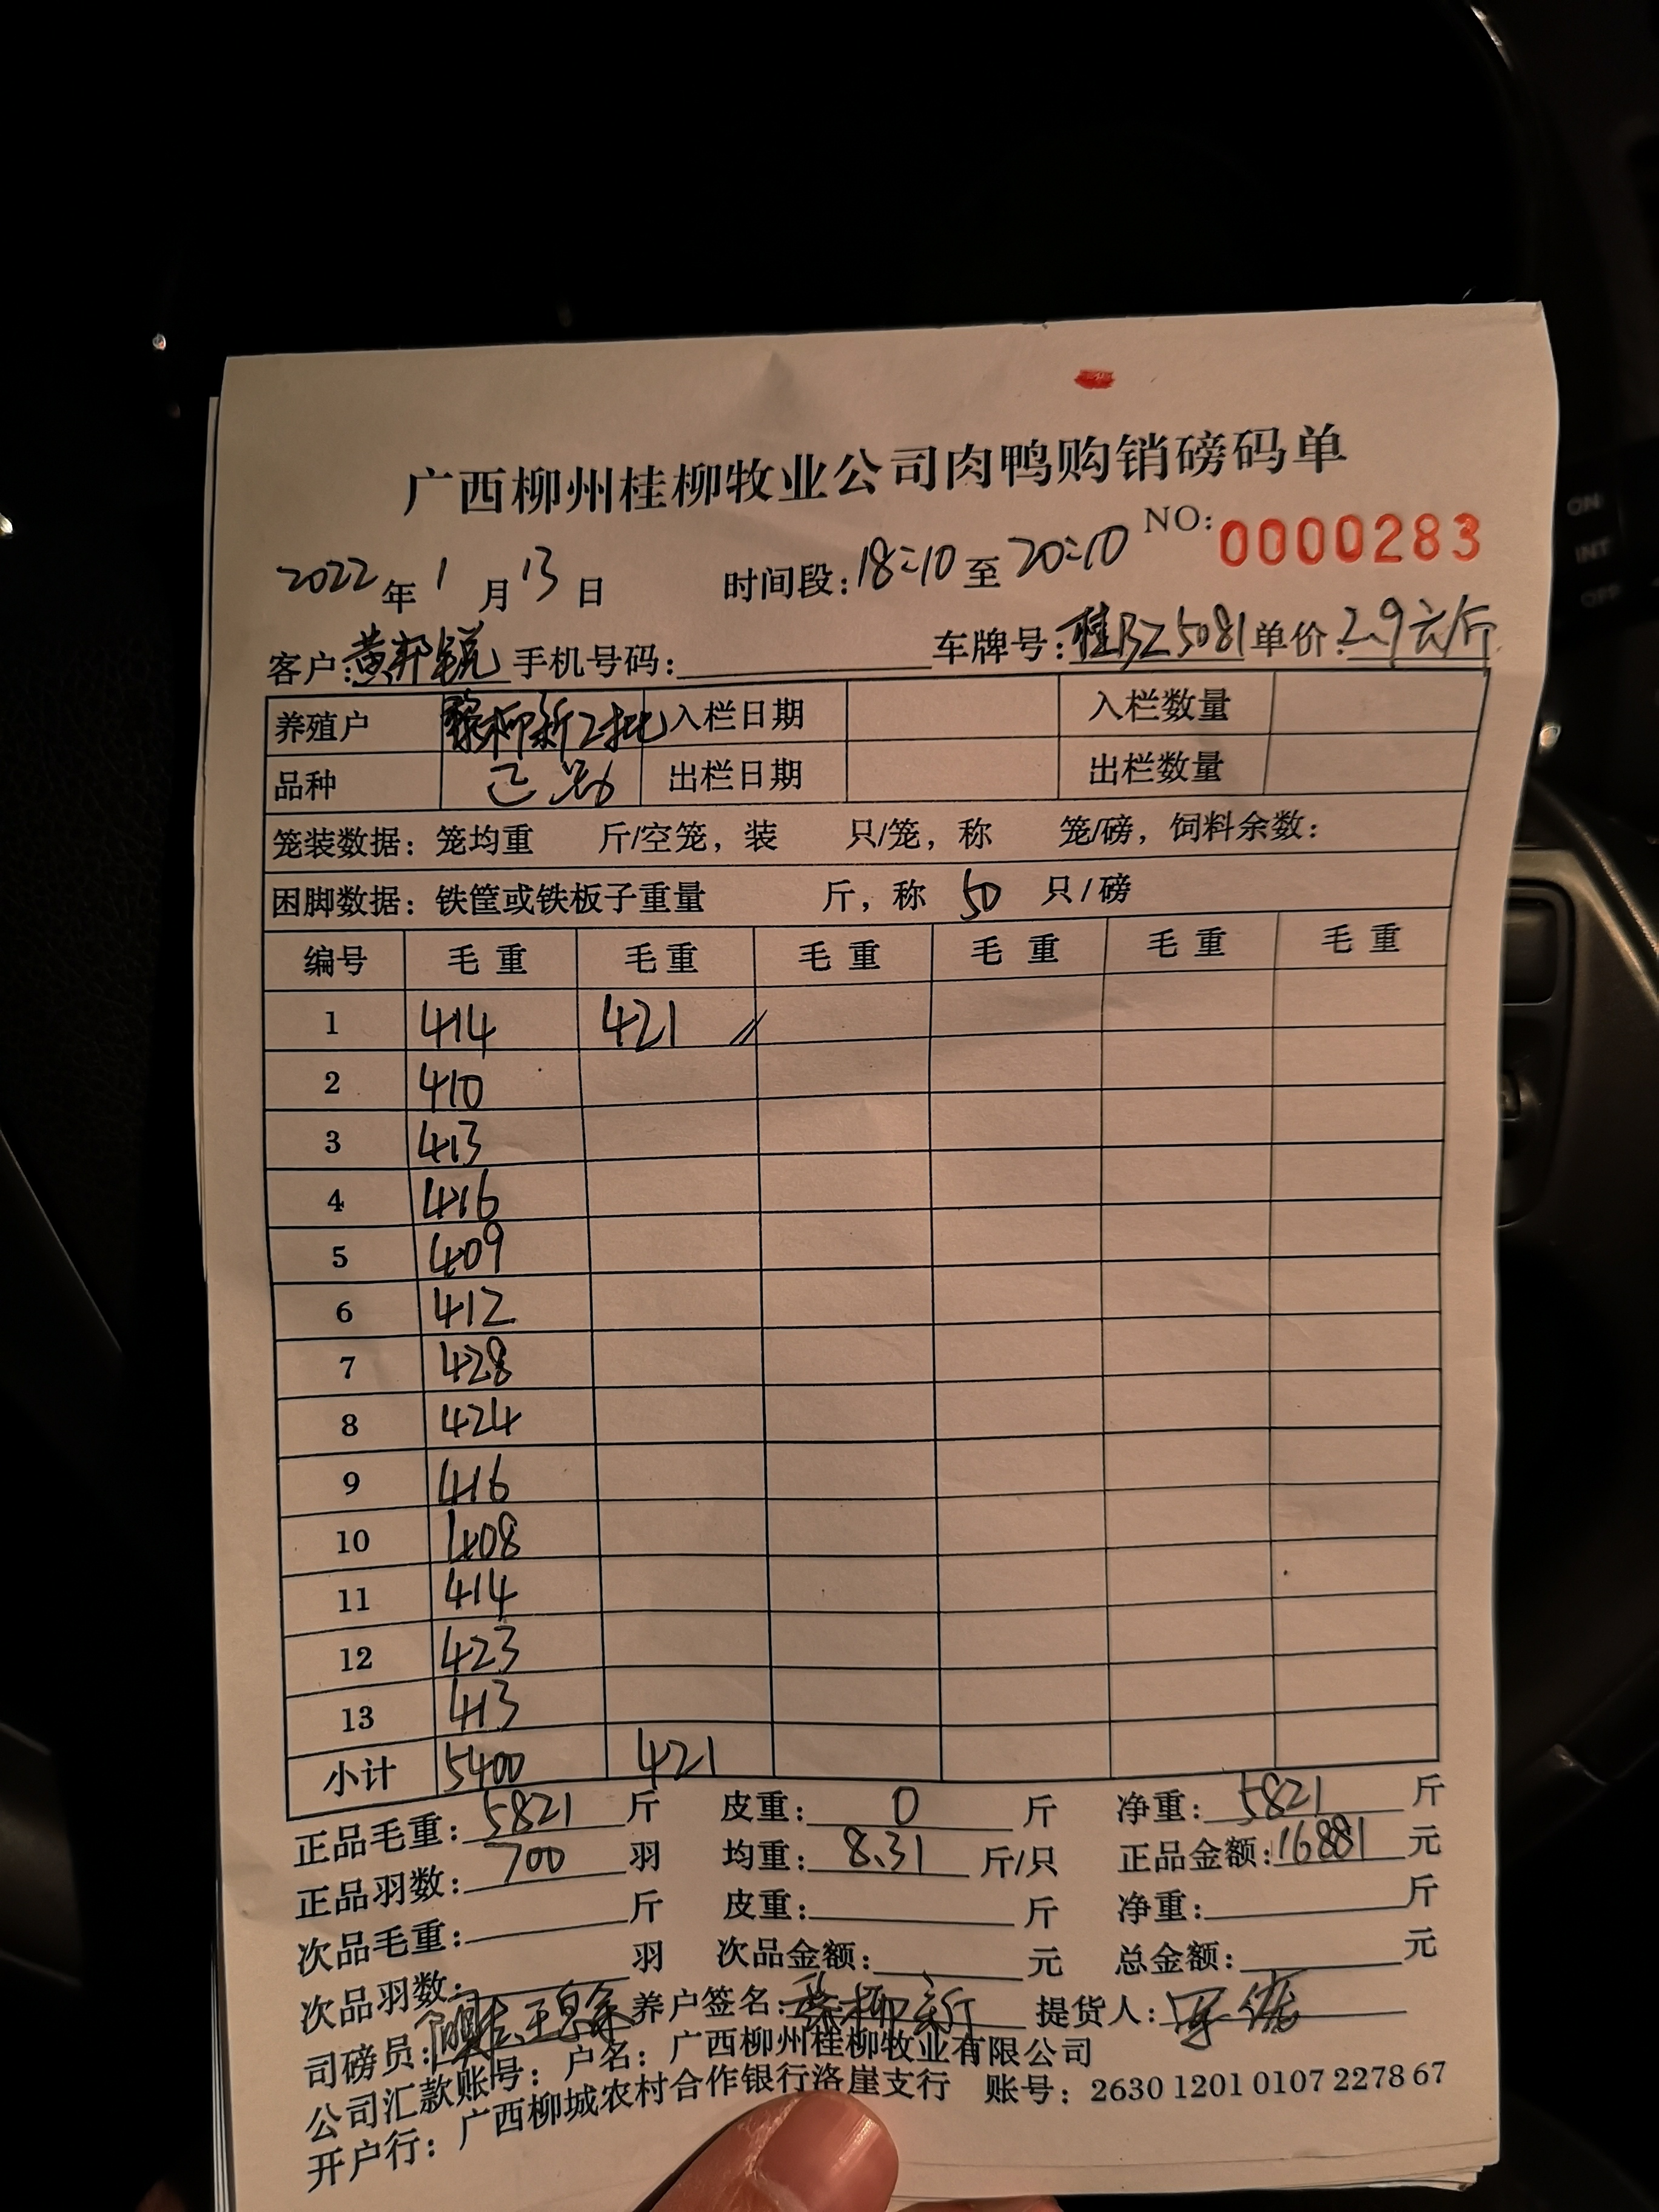 广西柳州桂柳牧业公司肉鸭购销磅码单
NO: 0000283
2022年1月13日 时间段:18:10至20:10
客户:黄邦锐 手机号码: 车牌号:桂BZ5081 单价:2.9元/斤
养殖户 黎柳新2批 入栏日期 入栏数量
品种 出栏日期 出栏数量
笼装数据: 笼均重 斤/空笼, 装 只/笼, 称 笼/磅, 饲料余数:
困脚数据: 铁筐或铁板子重量 斤, 称 50 只/磅
编号 毛重 毛重 毛重 毛重 毛重 毛重
1 414 421
2 410
3 413
4 416
5 409
6 412
7 428
8 424
9 416
10 408
11 414
12 423
13 413
小计 5400 421
正品毛重: 5821 斤 皮重: 0 斤 净重: 5821 斤
正品羽数: 700 羽 均重: 8.31 斤/只 正品金额: 16881 元
次品毛重: 斤 皮重: 斤 净重: 斤
次品羽数: 羽 次品金额: 元 总金额: 元
司磅员: 养户签名: 黎柳新 提货人:
公司汇款账号: 户名: 广西柳州桂柳牧业有限公司
开户行: 广西柳城农村合作银行洛崖支行 账号: 2630 1201 0107 2278 67
ON
INT
OFF